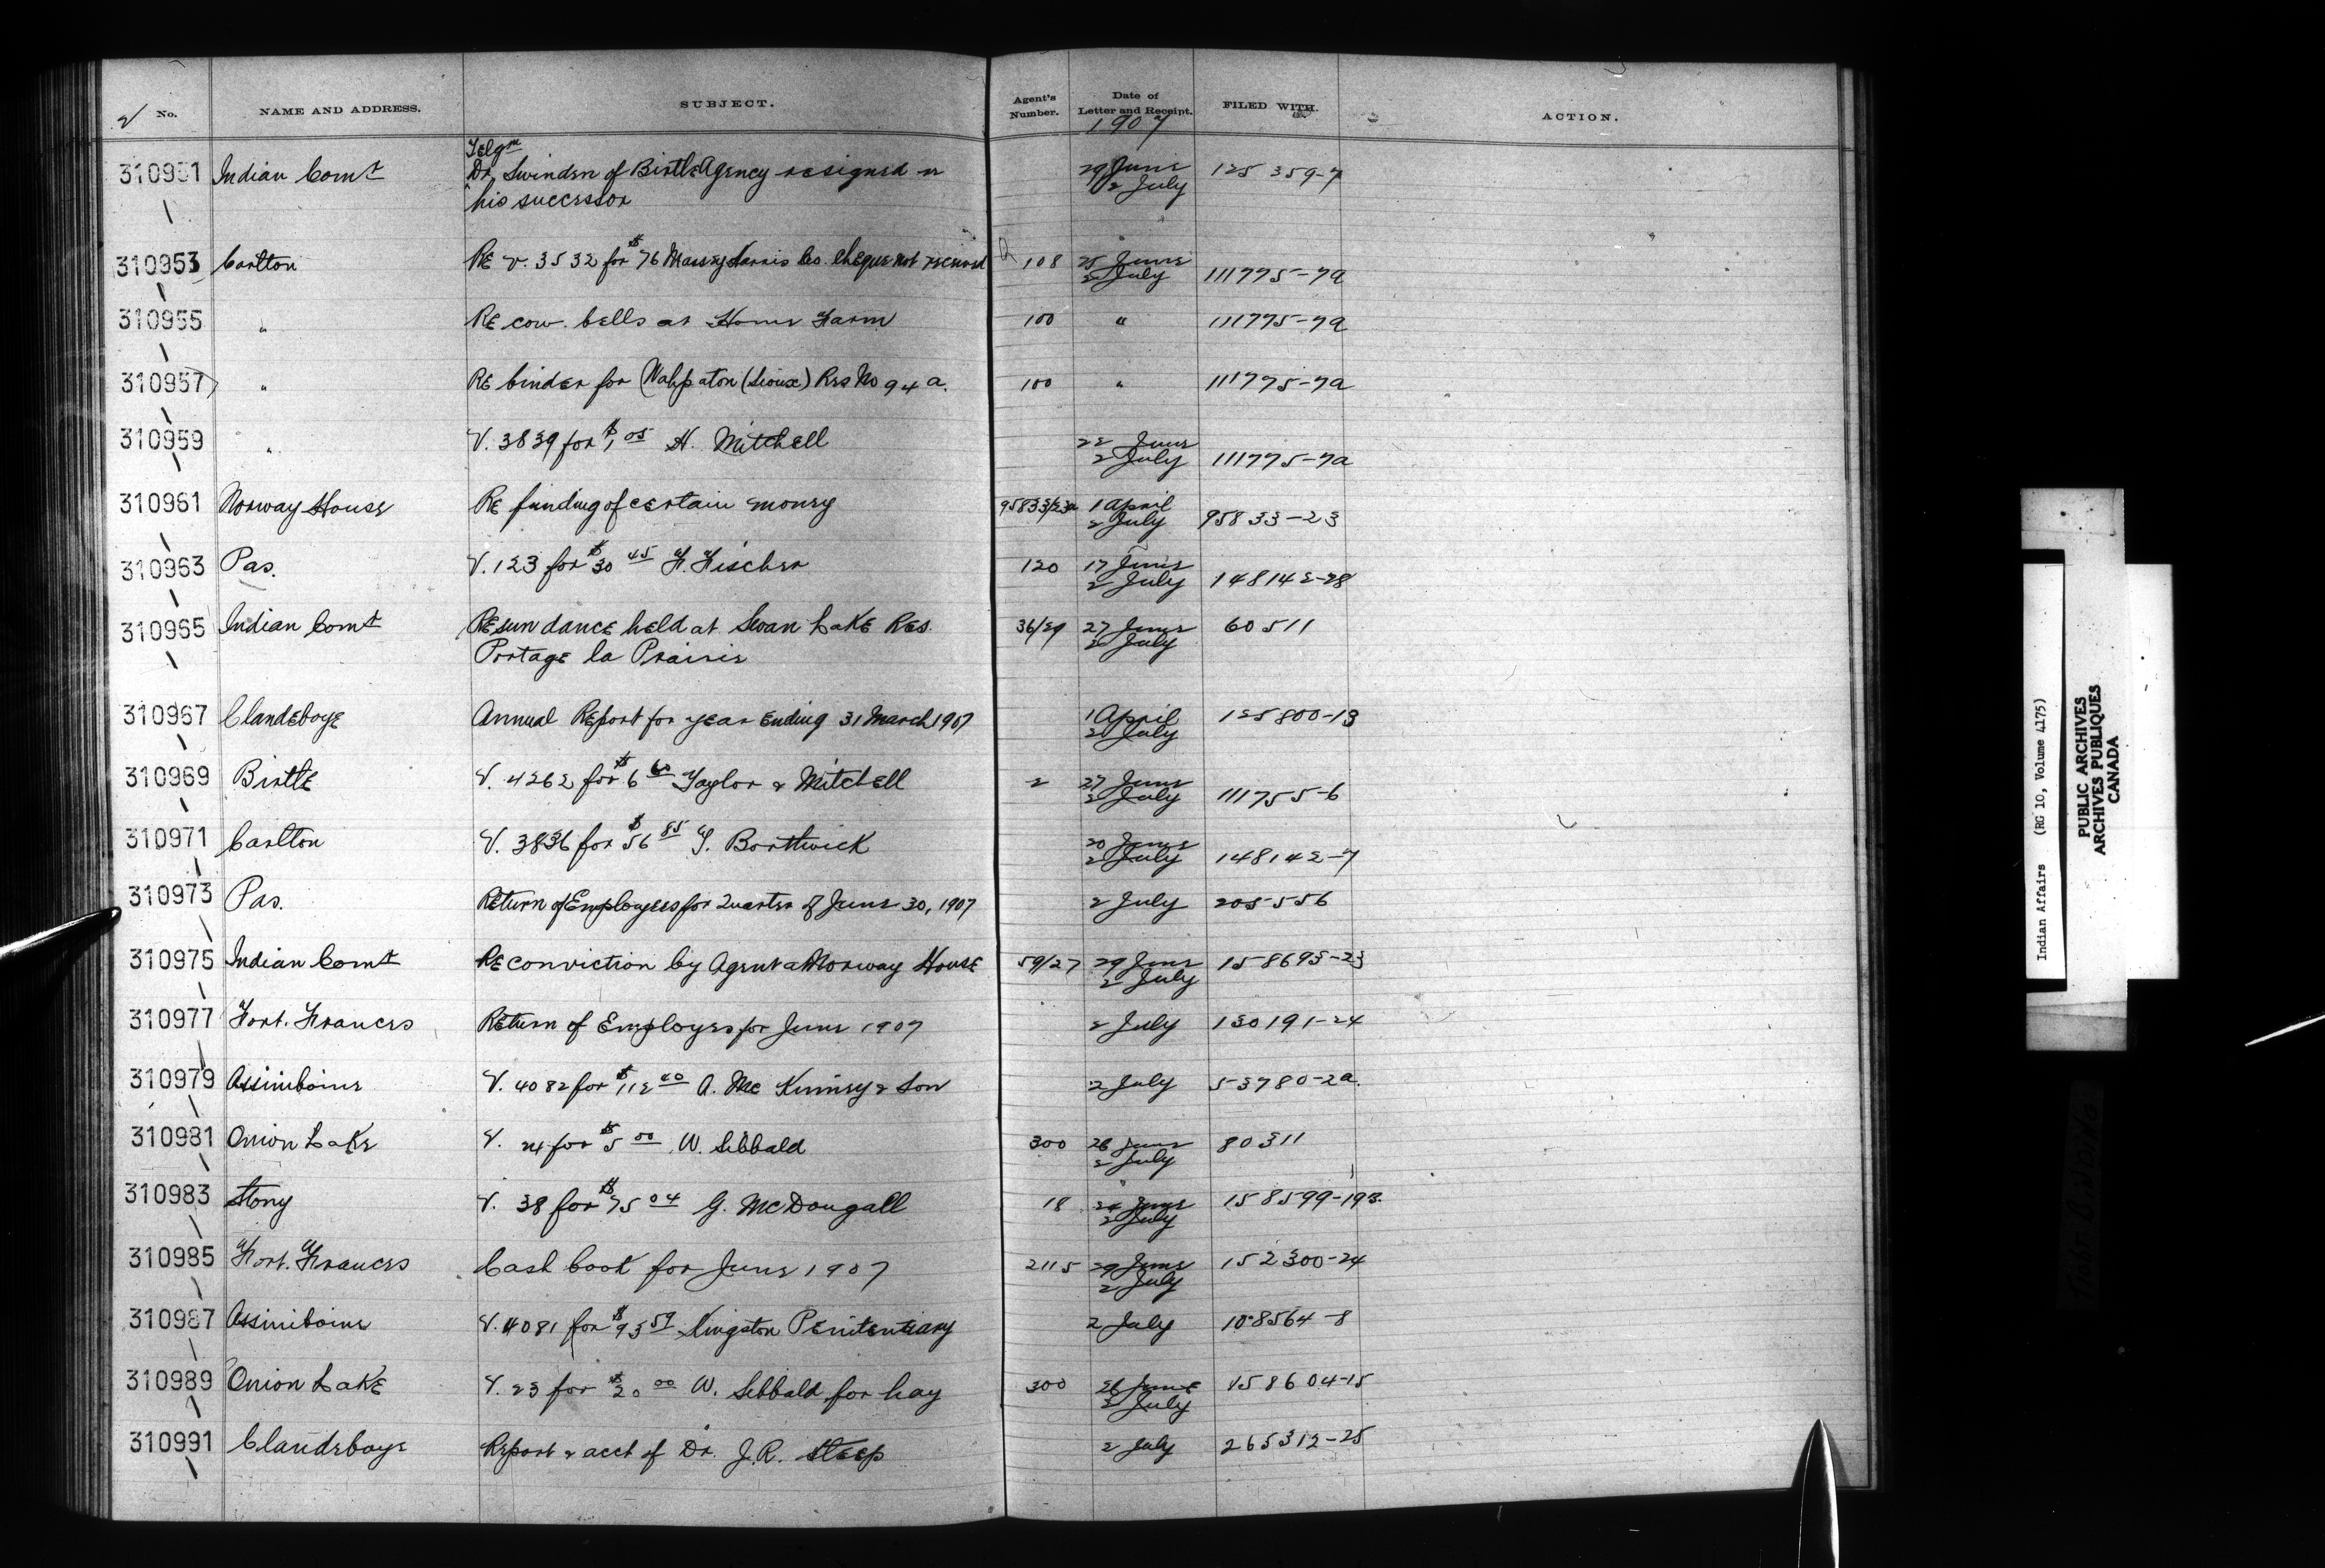 No. NAME AND ADDRESS. SUBJECT. Agent's Number. Date of Letter and Receipt. FILED WITH. ACTION.
1907
Telgm
310951 Indian Comr Dr. Swinden of Birtle Agency resigned re 29 June 125359-7
his successor 2 July
310953 Carlton Re V. 3532 for $76 Massey Harris Co. cheque not received 108 25 June
2 July 111775-7a
310955 " Re cow bells at Home Farm 100 " 111775-7a
310957 " Re binder for Wahpaton (Sioux) Res No 94a. 100 " 111775-7a
310959 " V. 3839 for $1.05 H. Mitchell 22 June
2 July 111775-7a
310961 Norway House Re funding of certain money 95833/23a 1 April
2 July 95833-23
310963 Pas. V. 123 for $30 45 F. Fischer 120 17 June
2 July 148142-28
310965 Indian Comr Re sun dance held at Swan Lake Res. 36/29 27 June 60511
Portage la Prairie 2 July
310967 Clandeboye Annual Report for year Ending 31 March 1907 1 April 125800-13
2 July
310969 Birtle V. 4262 for $6 60 Taylor & Mitchell 2 27 June
2 July 111755-6
310971 Carlton V. 3836 for $56 85 T. Borthwick 20 June
2 July 148142-7
310973 Pas. Return of Employees for Quarter of June 30, 1907 2 July 205556
310975 Indian Comr Re conviction by Agent at Norway House 59/27 29 June 158695-23
2 July
310977 Fort. Frances Return of Employes for June 1907 2 July 130191-24
310979 Assiniboine V. 4082 for $112 40 A. McKinney & Son 2 July 53780-2a.
310981 Onion Lake V. 24 for $5 00 W. Sibbald 300 26 June 80311
2 July
310983 Stony V. 38 for $75 04 G. McDougall 18 24 June 158599-19B.
2 July
310985 Fort. Frances Cash book for June 1907 2115 29 June 152300-24
2 July
310987 Assiniboine V. 4081 for $93 59 Kingston Penitentiary 2 July 108564-8
310989 Onion Lake V. 23 for $20 00 W. Sibbald for hay 300 26 June 158604-15
2 July
310991 Clandeboye Report & acct of Dr. J.R. Steep 2 July 265312-25
Indian Affairs (RG 10, Volume 4175)
PUBLIC ARCHIVES
ARCHIVES PUBLIQUES
CANADA